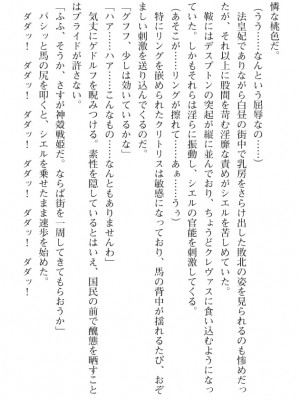 憐な桃色だ。
(うう……なんという屈辱なの……)
法皇妃でありながら白昼の街中で乳房をさらけ出した敗北の姿を見られるのも惨めだっ
たが、それ以上に股間を苛む淫靡な責めがシエルを苦しめていた。
鞍にはデスプトンの突起が縦に並んでおり、ちょうどクレヴァスに食い込むようになっ
ていた。しかもそれらは淫らに振動し、シエルの官能を刺激してくる。
(あそこが……リングが擦れて……あぁ……うぅ)
特にリングを嵌められたクリトリスは敏感になっており、馬の背中が揺れるたび、おぞ
ましい刺激を送り込んでくるのだ。
「グフフ、少しは効いているかな」
「ハァ……ハァ……こんなもの……なんともありませんわ」
気丈にゲドルフを睨みつける。素性を隠しているとはいえ、国民の前で醜態を晒すこと
はプライドが許さない。
「ふふ、そうか、さすが神殻戦姫だ。ならば街を一周してきてもらおうか」
パシッと馬の尻を叩くと、シエルを乗せたまま速歩を始めた。
ダダッ!　ダダッ!　ダダッ!　ダダッ!
ダダッ!　ダダッ!　ダダッ!　ダダッ!